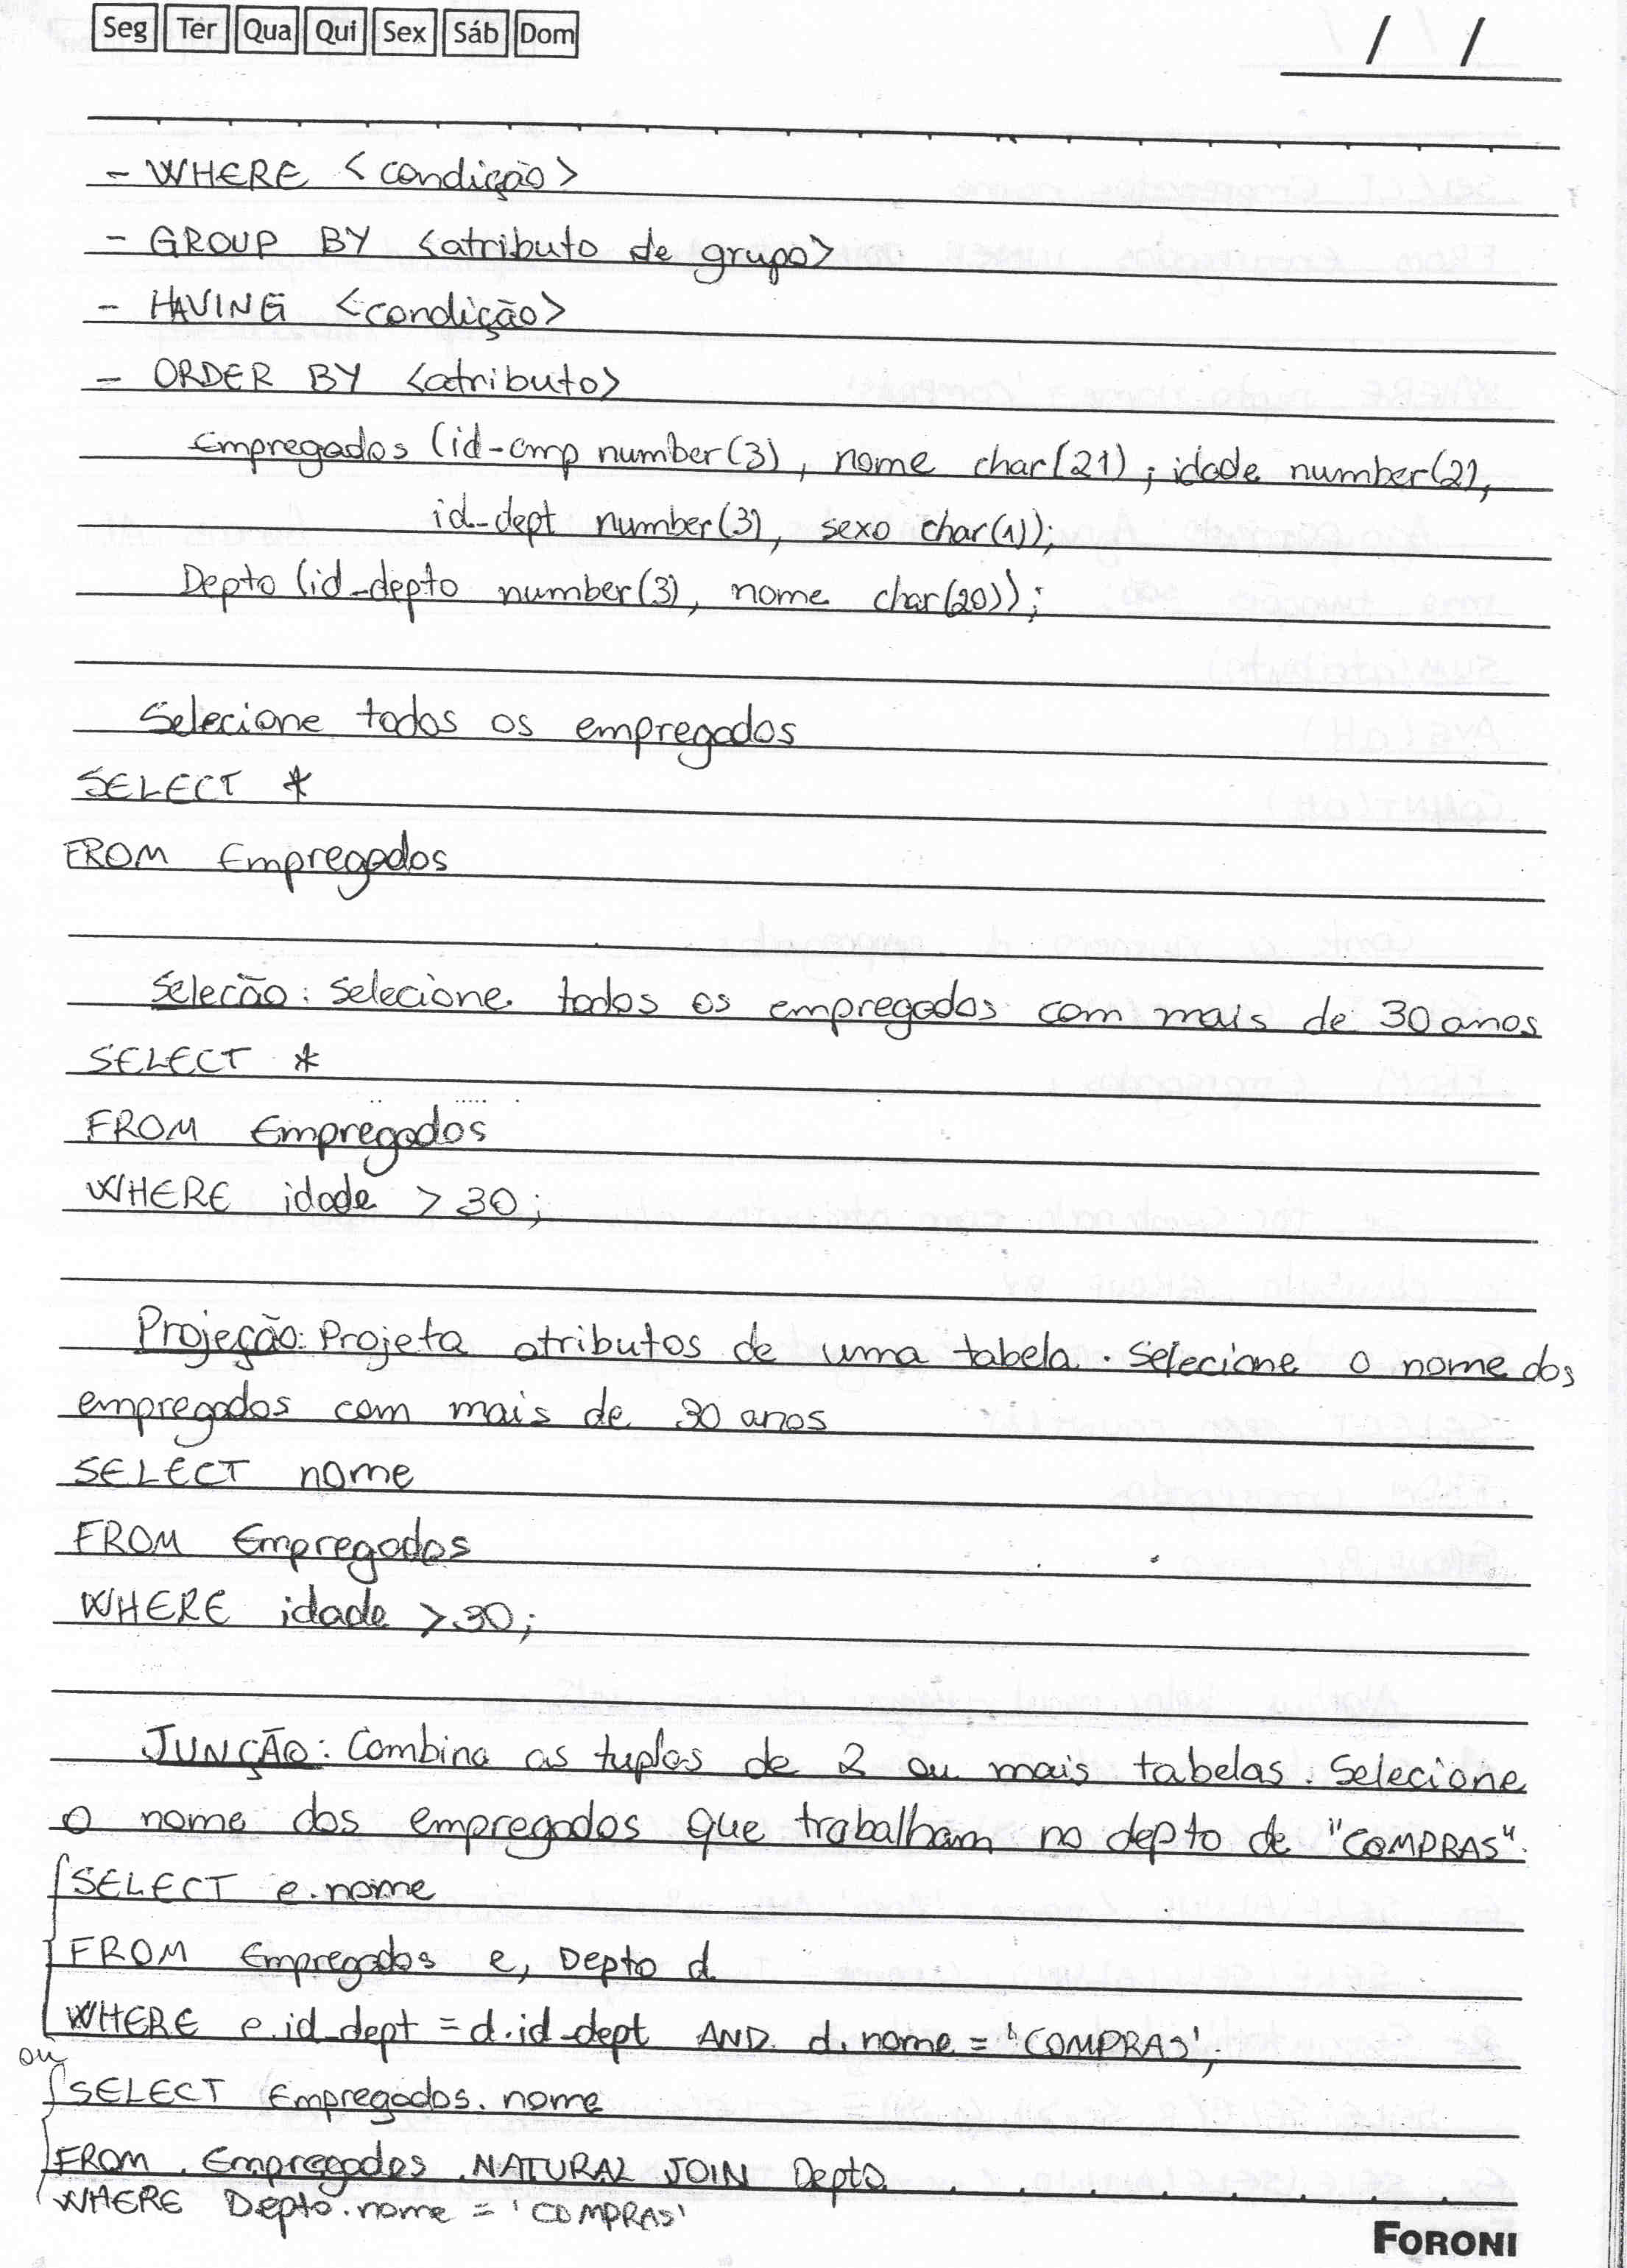 Seg Ter Qua Qui Sex Sáb Dom
/ /
- WHERE <condição>
- GROUP BY <atributo de grupo>
- HAVING <condição>
- ORDER BY <atributo>
Empregados (id-emp number(3), nome char(21); idade number(2),
id-dept number(3), sexo char(1));
Depto (id-depto number(3), nome char(20));
Selecione todos os empregados
SELECT *
FROM Empregados
Seleção: Selecione todos os empregados com mais de 30 anos
SELECT *
FROM Empregados
WHERE idade > 30;
Projeção: Projeta atributos de uma tabela. Selecione o nome dos
empregados com mais de 30 anos
SELECT nome
FROM Empregados
WHERE idade > 30;
JUNÇÃO: Combina as tuplas de 2 ou mais tabelas. Selecione
o nome dos empregados que trabalham no depto de "COMPRAS".
SELECT e.nome
FROM Empregados e, Depto d
WHERE e.id_dept = d.id-dept AND d.nome = 'COMPRAS';
ou
SELECT Empregados.nome
FROM Empregados NATURAL JOIN Depto
WHERE Depto.nome = 'COMPRAS'
FORONI